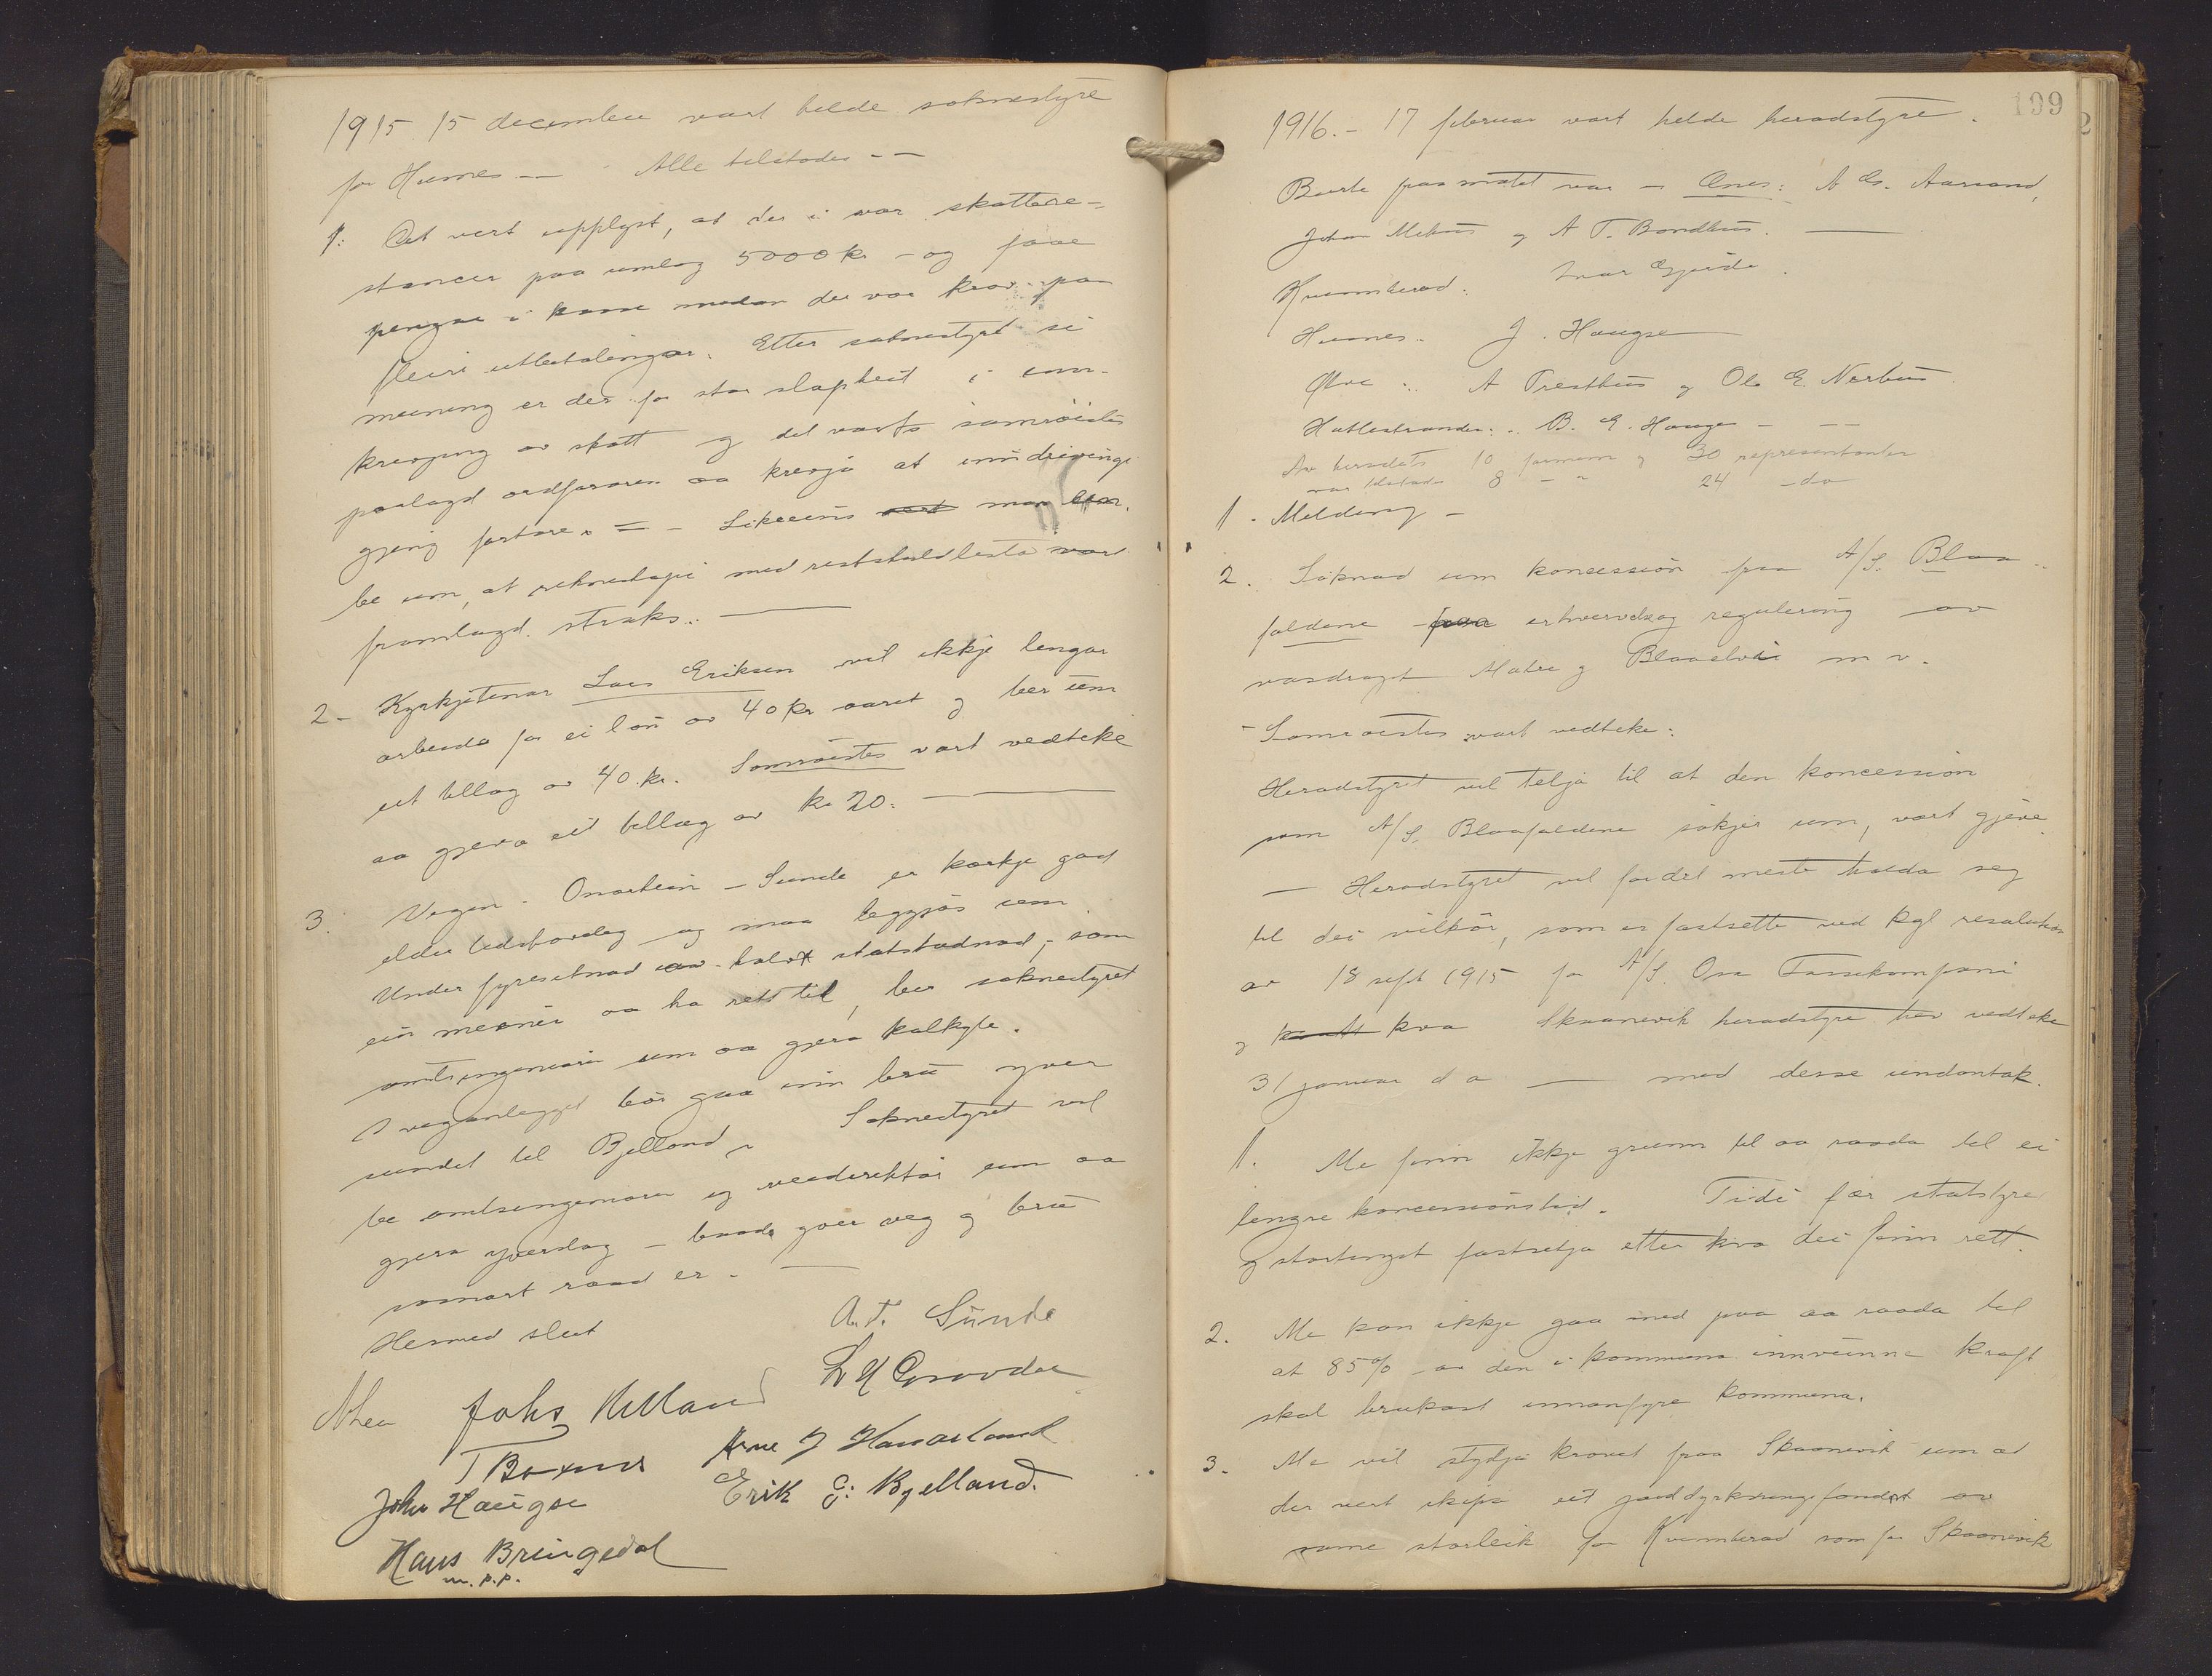 1915 15 december vart helde soknestyre
for Husnes — Alle tilstades - —
1: Det vert upplyst, at der i var skattere-
stancer paa umlag 5000 kr - og faae
pengar i kassa medan der var krav paa
fleire utbetalingar. Etter soknestyret si
meining er der for stor slapheit i inn-
krevjing av skatt og det varts samröistes
paalagd ordföraren aa krevja at inndrivingi
gjeng fortare. = - Likeeins vert man
be um, at rekneskapi med restskuldlista vard
framlagd straks. —
2- Kyrkjetenar Lars Eriksen vil ikkje lenger
arbeida for ei lön av 40 kr aaret og ber um
eit tillag av 40 kr. Samröistes vart vedteke
aa gjeva eit tillæg av kr 20. —
3. Vegen Onarheim - Sunde er korkje god
elder tidshøveleg og maa leggjas um.
Under fyresetnad av halv statstudnad, som
ein meiner aa ha rett til, ber soknestyret
amtsingeniøren um aa gjera kalkyle.
I veganlegget bör gaa inn bru yver
sundet til Bjelland. Soknestyret vil
be amtsingeniøren og veadirektör um aa
gjera yverslag - baade yver veg og bru
somart raad er. —
Hermed slutt
A. T. Sunde
Johs Helland L H Grovdal
T Boxnes Arne J Hanarland
John Haugse Erik G: Bjelland.
Hans Bringedal
m. p. p.
199
2
1916. - 17 februar vart helde heradstyre.
Burte paa mötet var — Ænes: A G. Aarsand,
Johan Mehus og A T. Bondhus. —
Kvinnherad: Ivar Gjerde.
Husnes. J. Haugse
Ølve: A Tresthus og Ola E. Nerhus
Hatlestranden: B. E. Hauge - — —
Av heradets 10 formenn og 30 representanter
var tilstades 8 - " 24 - do
1 - Melding -
2. Söknad um koncession fraa A/S. Blaa-
faldene paa erhvervelse og regulering av
vasdraget Matre og Blaaelvi m v.
- Samröistes vart vedteke:
Heradstyret vil telja til at den koncession
som A/S. Blaafaldene sökjer um, vart gjeve.
— Heradstyret vil for det meste halda seg
til dei vilkör, som er fastsette ved kgl resolution
av 18 sept 1915 for A/S. Osa Fossekompani
og kva Skaanevik heradstyre hev vedteke
31 januar d a — med desse undantak.
1. Me finn ikkje grunn til aa raada til ei
lengre koncessionstid. Tidi fær statstyre
og stortinget fastsetja etter kva dei finn rett.
2. Me kan ikkje gaa med paa aa raada til
at 85% av den i kommuna innvunne kraft
skal brukast innanfyre kommuna.
3. Me vil stydja kravet fraa Skaanevik um at
der vert skipa eit jorddyrkningsfondet av
same storleik for Kvinnherad som for Skaanevik